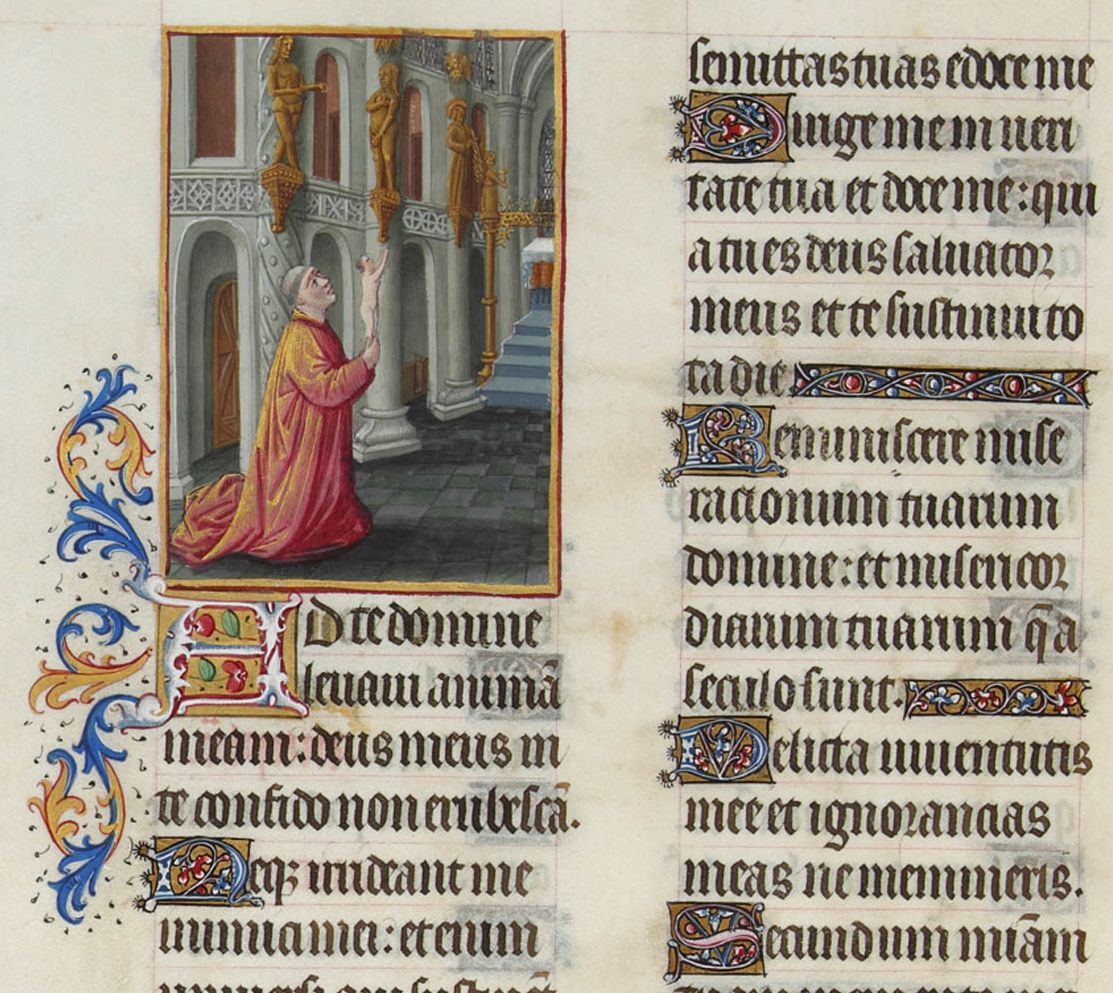 AD te domine
leuaui animā
meam: deus meus in
te confido non erubescā.
Neqꝫ irrideant me
inimici mei: etenim
uniuersi qui sustinēt
semittas tuas edoce me
Dirige me in ueri
tate tua et doce me: qui
a tu es deus saluator
meus et te sustinui to
ta die
Reminiscere mise
rationum tuarum
domine: et misericor
diarum tuarum q̄ a
seculo sunt.
Delicta iuuentutis
mee et ignorancias
meas ne memineris.
Secundum mīam